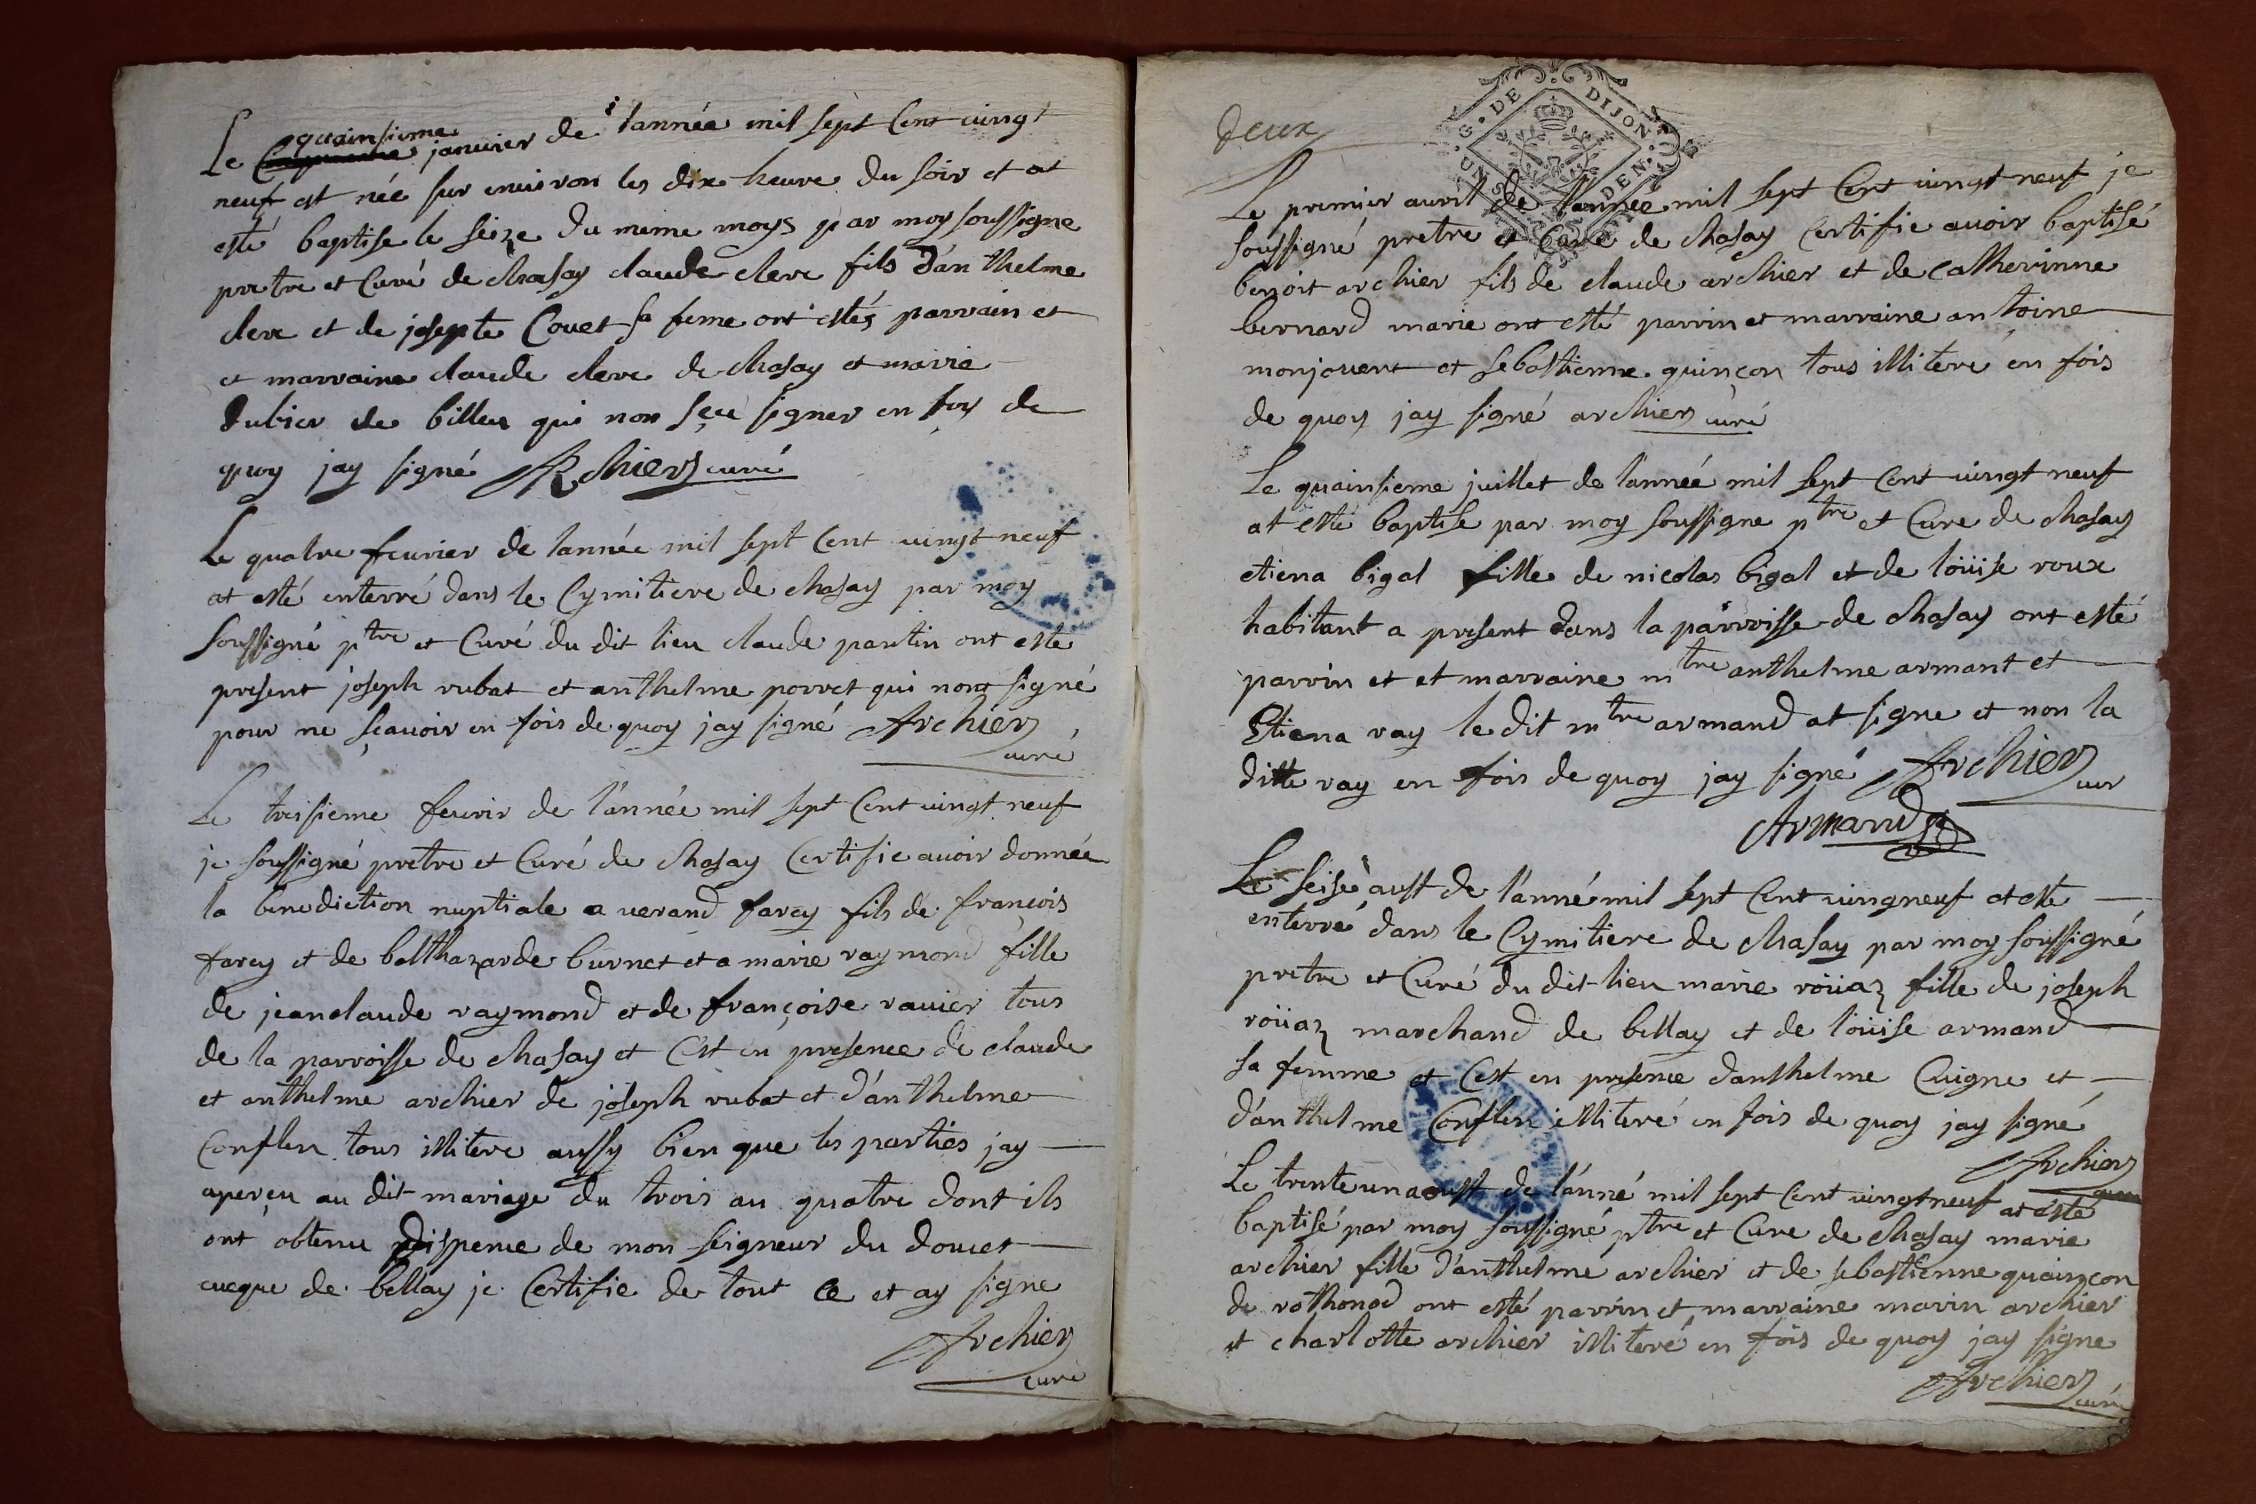 quainsieme
Le janvier de lannée mil sept Cent vingt
neuf est née sur environ les dix heure du soir et at
esté baptise le seize du meme moys par moy soussigne
pretre et Curé de chasay claude clerc fils d'anthelme
clerc et de josepte Couet sa feme ont estés parrain et
et marraine claude clerc de chasay et marie
dubier de billeu qui non sçeu signer en foy de
quoy jay signé Archier curé
Le quatre fevrier de lannée mil sept Cent vingt neuf
at esté enterré dans le Cymitiere de chasay par moy
soussigné ptre et Curé du dit lieu claude pantin ont esté
present joseph rubat et anthelme porret qui nont signé
pour ne sçavoir en fois de quoy jay signé Archier
curé
Le treisieme fevrir de l'année mil sept Cent vingt neuf
je soussigné pretre et Curé de chasay Certifie avoir donnée
la benediction nuptiale a verand farcy fils de françois
farcy et de balthazarde burnet et a marie raymond fille
de jeanclaude raymond et de françoise ravier tous
de la parroisse de chasay et C'est en presence de claude
et anthelme archier de joseph rubat et d'anthelme
Conflen tous illitere aussy bien que les parties jay
aperçu au dit mariage du trois au quatre dont ils
ont obtenu dispense de mon seigneur du doucet
eveque de bellay je Certifie de tout ce et ay signe
Archier
curé
deux
G. DE DIJON
Le premier avril de l'année mil sept Cent vingt neuf je
soussigné pretre et Curé de chasay Certifie avoir baptisé
benoit archier fils de claude archier et de catherinne
bernard marie ont esté parrin et marraine antoine
monjouvent et sebastienne quinçon tous illitere en fois
de quoy jay signé archier curé
Le quainsieme juillet de l'année mil sept Cent vingt neuf
at esté baptise par moy soussigne ptre et Cure de chasay
etiena bigal fille de nicolas bigal et de loüise roux
habitant a present dans la parroisse de chasay ont esté
parrin et et marraine mtre anthelme armant et
Etiena ray le dit mtre armand at signe et non la
ditte ray en fois de quoy jay signé Archier
cur
Armand
Le seise aust de l'année mil sept Cent vingneuf at esté
enterré dans le Cymitiere de chasay par moy soussigné
pretre et Curé du dit lieu marie roüaz fille de joseph
roüaz marchand de bellay et de loüise armand
sa femme et C'est en presence danthelme Cuigne et
d'anthelme Conflen illiteré en fois de quoy jay signé
Archier
Le trente un aoust de l'anné mil sept Cent vingtneuf at esté
baptisé par moy soussigné ptre et Cure de chasay marie
archier fille d'anthelme archier et de sebastienne quainçon
de rothonod ont esté parrin et marraine marin archier
et charlotte archier illiteré en fois de quoy jay signe
Archier
curé